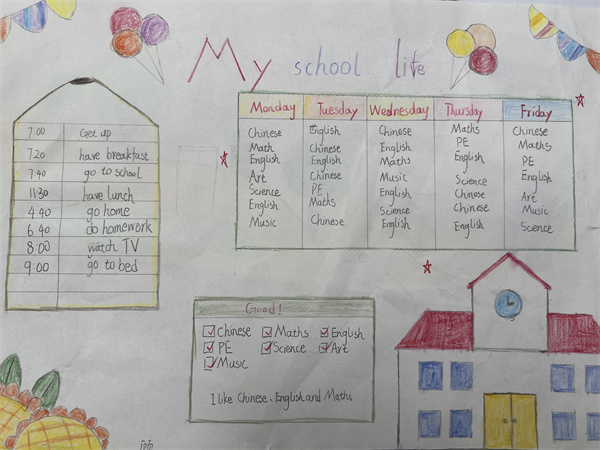 My school life
7:00 Get up
7:20 have breakfast
7:40 go to school
11:30 have lunch
4:40 go home
6:40 do homework
8:00 watch TV
9:00 go to bed
Monday Tuesday Wednesday Thursday Friday
Chinese English Chinese Maths Chinese
Math Chinese English PE Maths
English English Maths English PE
Art Chinese Music Science English
Science PE English Chinese Art
English Maths Science Chinese Music
Music Chinese English English Science
Good!
Chinese Maths English
PE Science Art
Music
I like Chinese、English and Maths